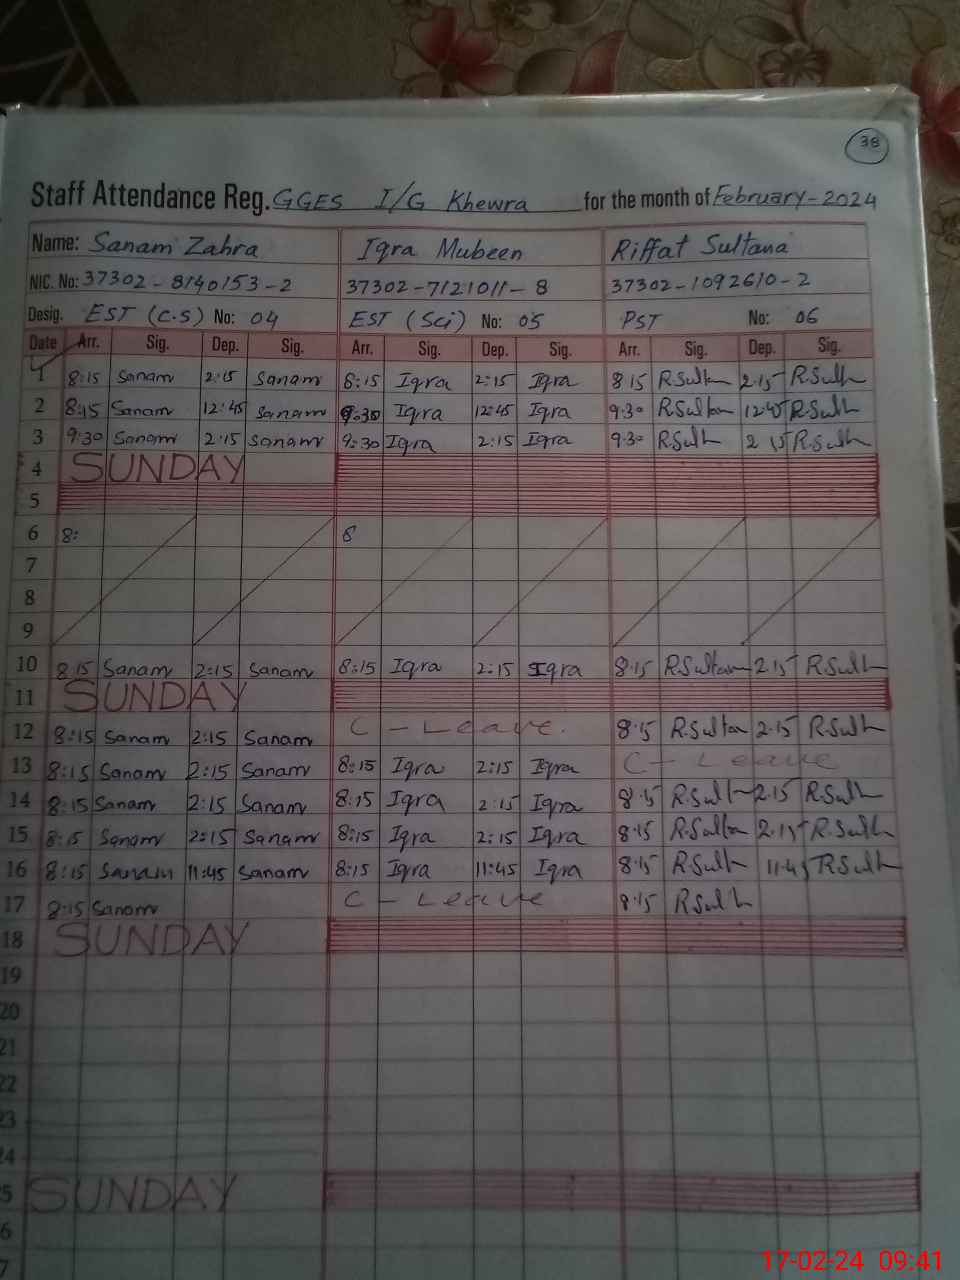 38
Staff Attendance Reg. GGES I/G Khewra for the month of February-2024
Name: Sanam Zahra Iqra Mubeen Riffat Sultana
NIC. No: 37302-8140153-2 37302-7121011-8 37302-1092610-2
Desig. EST (C.S) No: 04 EST (Sci) No: 05 PST No: 06
Date Arr. Sig. Dep. Sig. Arr. Sig. Dep. Sig. Arr. Sig. Dep. Sig.
1 8:15 Sanam 2:15 Sanam 8:15 Iqra 2:15 Iqra 8 15 R.Sultan 2.15 R.Sulh
2 8:15 Sanam 12:45 Sanam 9:30 Iqra 12:45 Iqra 9.30 R.Sultan 12.45 R.Sulh
3 9:30 Sanam 2:15 Sanam 9:30 Iqra 2:15 Iqra 9.30 R.Sulh 2 15 R.Sulh
4 SUNDAY
5
6 8: 8
7
8
9
10 8:15 Sanam 2:15 Sanam 8:15 Iqra 2:15 Iqra 8.15 R.Sultan 2.15 R.Sulh
11 SUNDAY
12 8:15 Sanam 2:15 Sanam C - Leave. 8.15 R.Sultan 2.15 R.Sulh
13 8:15 Sanam 2:15 Sanam 8:15 Iqra 2:15 Iqra C - Leave
14 8:15 Sanam 2:15 Sanam 8:15 Iqra 2:15 Iqra 8.15 R.Sulh 2.15 R.Sulh
15 8:15 Sanam 2:15 Sanam 8:15 Iqra 2:15 Iqra 8.15 R.Sultan 2.15 R.Sulh
16 8:15 Sanam 11:45 Sanam 8:15 Iqra 11:45 Iqra 8.15 R.Sulh 11.45 R.Sulh
17 8:15 Sanam C - Leave 8.15 R.Sulh
18 SUNDAY
19
20
21
22
23
24
5 SUNDAY
6
7
17-02-24 09:41